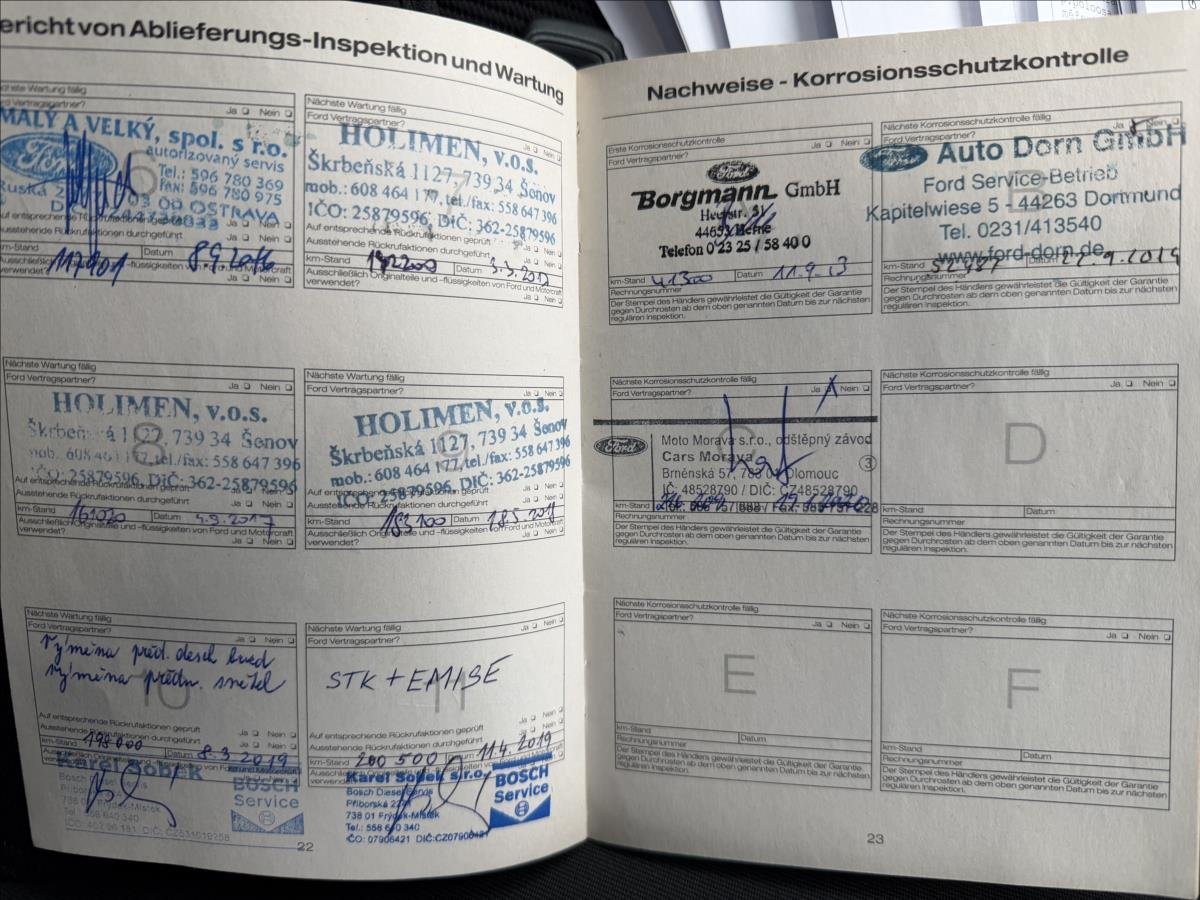 ericht von Ablieferungs-Inspektion und Wartung
MALÝ A VELKÝ, spol. s r.o.
Ford
autorizovaný servis
Tel.: 596 780 369
Fax: 596 780 975
Ruská
03 00 OSTRAVA
km-Stand 117901 Datum
Nächste Wartung fällig
Ford Vertragspartner? Ja Nein
HOLIMEN, v.o.s.
Škrbeňská 1127, 739 34 Šenov
mob.: 608 464 177, tel./fax: 558 647 396
IČO: 25879596, DIČ: 362-25879596
Auf entsprechende Rückrufaktionen geprüft
Ausstehende Rückrufaktionen durchgeführt
km-Stand Datum
Ausschließlich Originalteile und -flüssigkeiten von Ford und Motorcraft
verwendet? Ja Nein
Nächste Wartung fällig
Ford Vertragspartner? Ja Nein
8
HOLIMEN, v.o.s.
Škrbeňská 1127, 739 34 Šenov
mob.: 608 464 177, tel./fax: 558 647 396
IČO: 25879596, DIČ: 362-25879596
Ausstehende Rückrufaktionen durchgeführt
km-Stand 161020 Datum 4.9.2017
Ausschließlich Originalteile und -flüssigkeiten von Ford und Motorcraft
verwendet? Ja Nein
Nächste Wartung fällig
Ford Vertragspartner? Ja Nein
9
HOLIMEN, v.o.s.
Škrbeňská 1127, 739 34 Šenov
mob.: 608 464 177, tel./fax: 558 647 396
IČO: 25879596, DIČ: 362-25879596
Ausstehende Rückrufaktionen durchgeführt
km-Stand Datum
Ausschließlich Originalteile und -flüssigkeiten von Ford und Motorcraft
verwendet? Ja Nein
Nächste Wartung fällig
Ford Vertragspartner? Ja Nein
10
Výměna před.
výměna předn.
Auf entsprechende Rückrufaktionen geprüft
Ausstehende Rückrufaktionen durchgeführt
km-Stand 198000 Datum 8.3.2019
Karel Sobek
Příborská
738 01 Frýdek-Místek
Tel.: 558 640 340
BOSCH
Service
Nächste Wartung fällig
Ford Vertragspartner? Ja Nein
11
STK + EMISE
Auf entsprechende Rückrufaktionen geprüft
Ausstehende Rückrufaktionen durchgeführt
km-Stand 200 500 Datum 11.4.2019
Karel Sobek s.r.o.
Bosch Diesel Servis
Příborská
738 01 Frýdek-Místek
Tel.: 558 640 340
IČO: 07906421 DIČ:CZ07906421
BOSCH
Service
22
Nachweise - Korrosionsschutzkontrolle
Erste Korrosionskontrolle
Ford Vertragspartner? Ja Nein
Ford
Borgmann GmbH
44653 Herne
Telefon 0 23 25 / 58 40 0
km-Stand 41300 Datum 11.9.13
Rechnungsnummer
Der Stempel des Händlers gewährleistet die Gültigkeit der Garantie
gegen Durchrosten ab dem oben genannten Datum bis zur nächsten
regulären Inspektion.
Nächste Korrosionskontrolle fällig
Ford Vertragspartner? Ja Nein
B
Ford
Auto Dorn GmbH
Ford Service-Betrieb
Kapitelwiese 5 - 44263 Dortmund
Tel. 0231/413540
www.ford-dorn.de
km-Stand Datum
Rechnungsnummer
Der Stempel des Händlers gewährleistet die Gültigkeit der Garantie
gegen Durchrosten ab dem oben genannten Datum bis zur nächsten
regulären Inspektion.
Nächste Korrosionsschutzkontrolle fällig
Ford Vertragspartner? Ja Nein
C
Ford
Moto Morava s.r.o., odštěpný závod
Cars Morava
3
Brněnská 57, Olomouc
IČ: 48528790 / DIČ: CZ48528790
km-Stand
Rechnungsnummer
Der Stempel des Händlers gewährleistet die Gültigkeit der Garantie
gegen Durchrosten ab dem oben genannten Datum bis zur nächsten
regulären Inspektion.
Nächste Korrosionsschutzkontrolle fällig
Ford Vertragspartner? Ja Nein
D
km-Stand Datum
Rechnungsnummer
Der Stempel des Händlers gewährleistet die Gültigkeit der Garantie
gegen Durchrosten ab dem oben genannten Datum bis zur nächsten
regulären Inspektion.
Nächste Korrosionsschutzkontrolle fällig
Ford Vertragspartner? Ja Nein
E
km-Stand Datum
Rechnungsnummer
Der Stempel des Händlers gewährleistet die Gültigkeit der Garantie
gegen Durchrosten ab dem oben genannten Datum bis zur nächsten
regulären Inspektion.
Nächste Korrosionsschutzkontrolle fällig
Ford Vertragspartner? Ja Nein
F
km-Stand Datum
Rechnungsnummer
Der Stempel des Händlers gewährleistet die Gültigkeit der Garantie
gegen Durchrosten ab dem oben genannten Datum bis zur nächsten
regulären Inspektion.
23